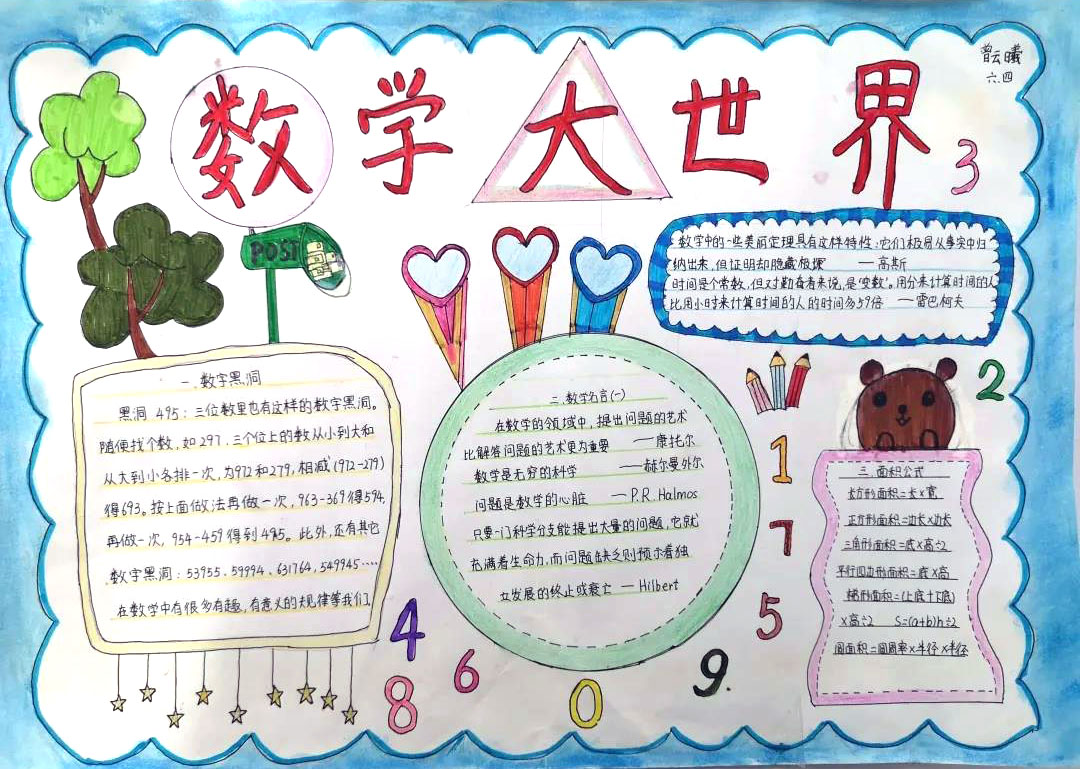 数学大世界
曾云曦
六.四
3
POST
数学中的一些美丽定理具有这样特性:它们极易从事实中归
纳出来,但证明却隐藏极深 —高斯
时间是个常数,但对勤奋者来说,是'变数'。用分来计算时间的人
比用小时来计算时间的人的时间多59倍 —雷巴柯夫
一.数字黑洞
黑洞 495:三位数里也有这样的数字黑洞。
随便找个数,如297.三个位上的数从小到大和
从大到小各排一次,为972和279,相减(972-279)
得693。按上面做法再做一次,963-369得594,
再做一次,954-459得到495。此外,还有其它
数字黑洞:53955.59994.631764.549945....
在数学中有很多有趣,有意义的规律等我们
二.数学名言(一)
在数学的领域中,提出问题的艺术
比解答问题的艺术更为重要 —康托尔
数学是无穷的科学 —赫尔曼外尔
问题是数学的心脏 —P.R.Halmos
只要一门科学分支能提出大量的问题,它就
充满着生命力,而问题缺乏则预示着独
立发展的终止或衰亡 — Hilbert
2
1
7
5
三.面积公式
长方形面积=长×宽
正方形面积=边长×边长
三角形面积=底×高÷2
平行四边形面积=底×高
梯形面积=(上底+下底)
×高÷2 S=(a+b)h÷2
圆面积=圆周率×半径×半径
4
6
8
0
9.